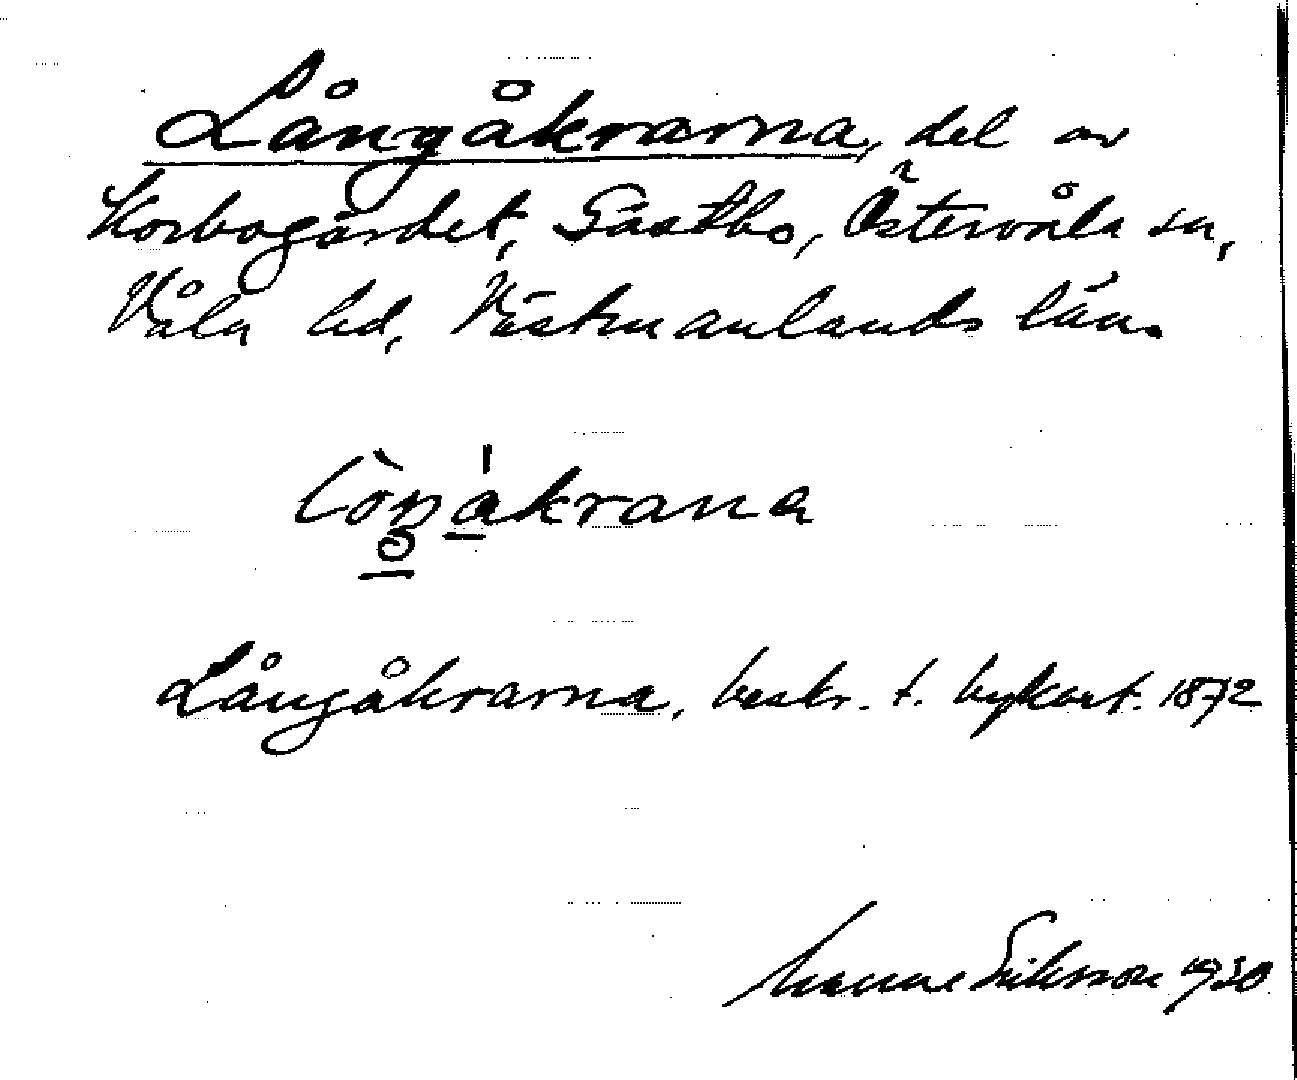 Långåkrarna, del av
Korbogärdet, Gästbo, Östervåla sn,
Våla hd, Västmanlands län.
Långåkrarna, beskr. t. bykart. 1872
Manne Eriksson 1930